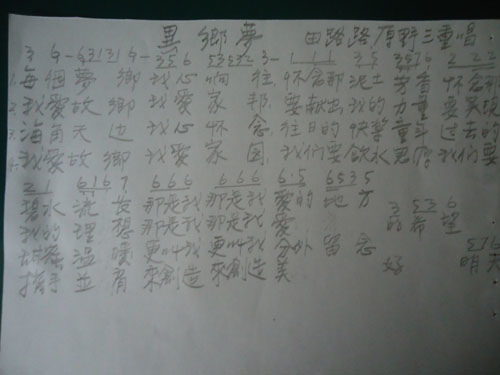 異鄉夢 田路路 原野三重唱
3 6- 63131 6- 356 53532 3- 1 1 1 3 5 3536 2 2 2 3
1. 每個夢鄉我心嚮往 怀念那泥土芳香 怀念那
2. 我愛故鄉我愛家邦 要献出我的力量 要实现
3. 海角天边我心怀念往日的快樂童年 过去的
4. 我愛故鄉我愛家国 我們要飲水思源 我们要
2 1 6 1 6 7 6 6 6 6 6 6 6 5 6535
碧水流 那是我那是我愛的地方 3 53 6
我的理想 那是我那是我愛 的希望
甜蜜温暖更叫我更叫我分外留念
携手並肩來創造來創造美 好 明天